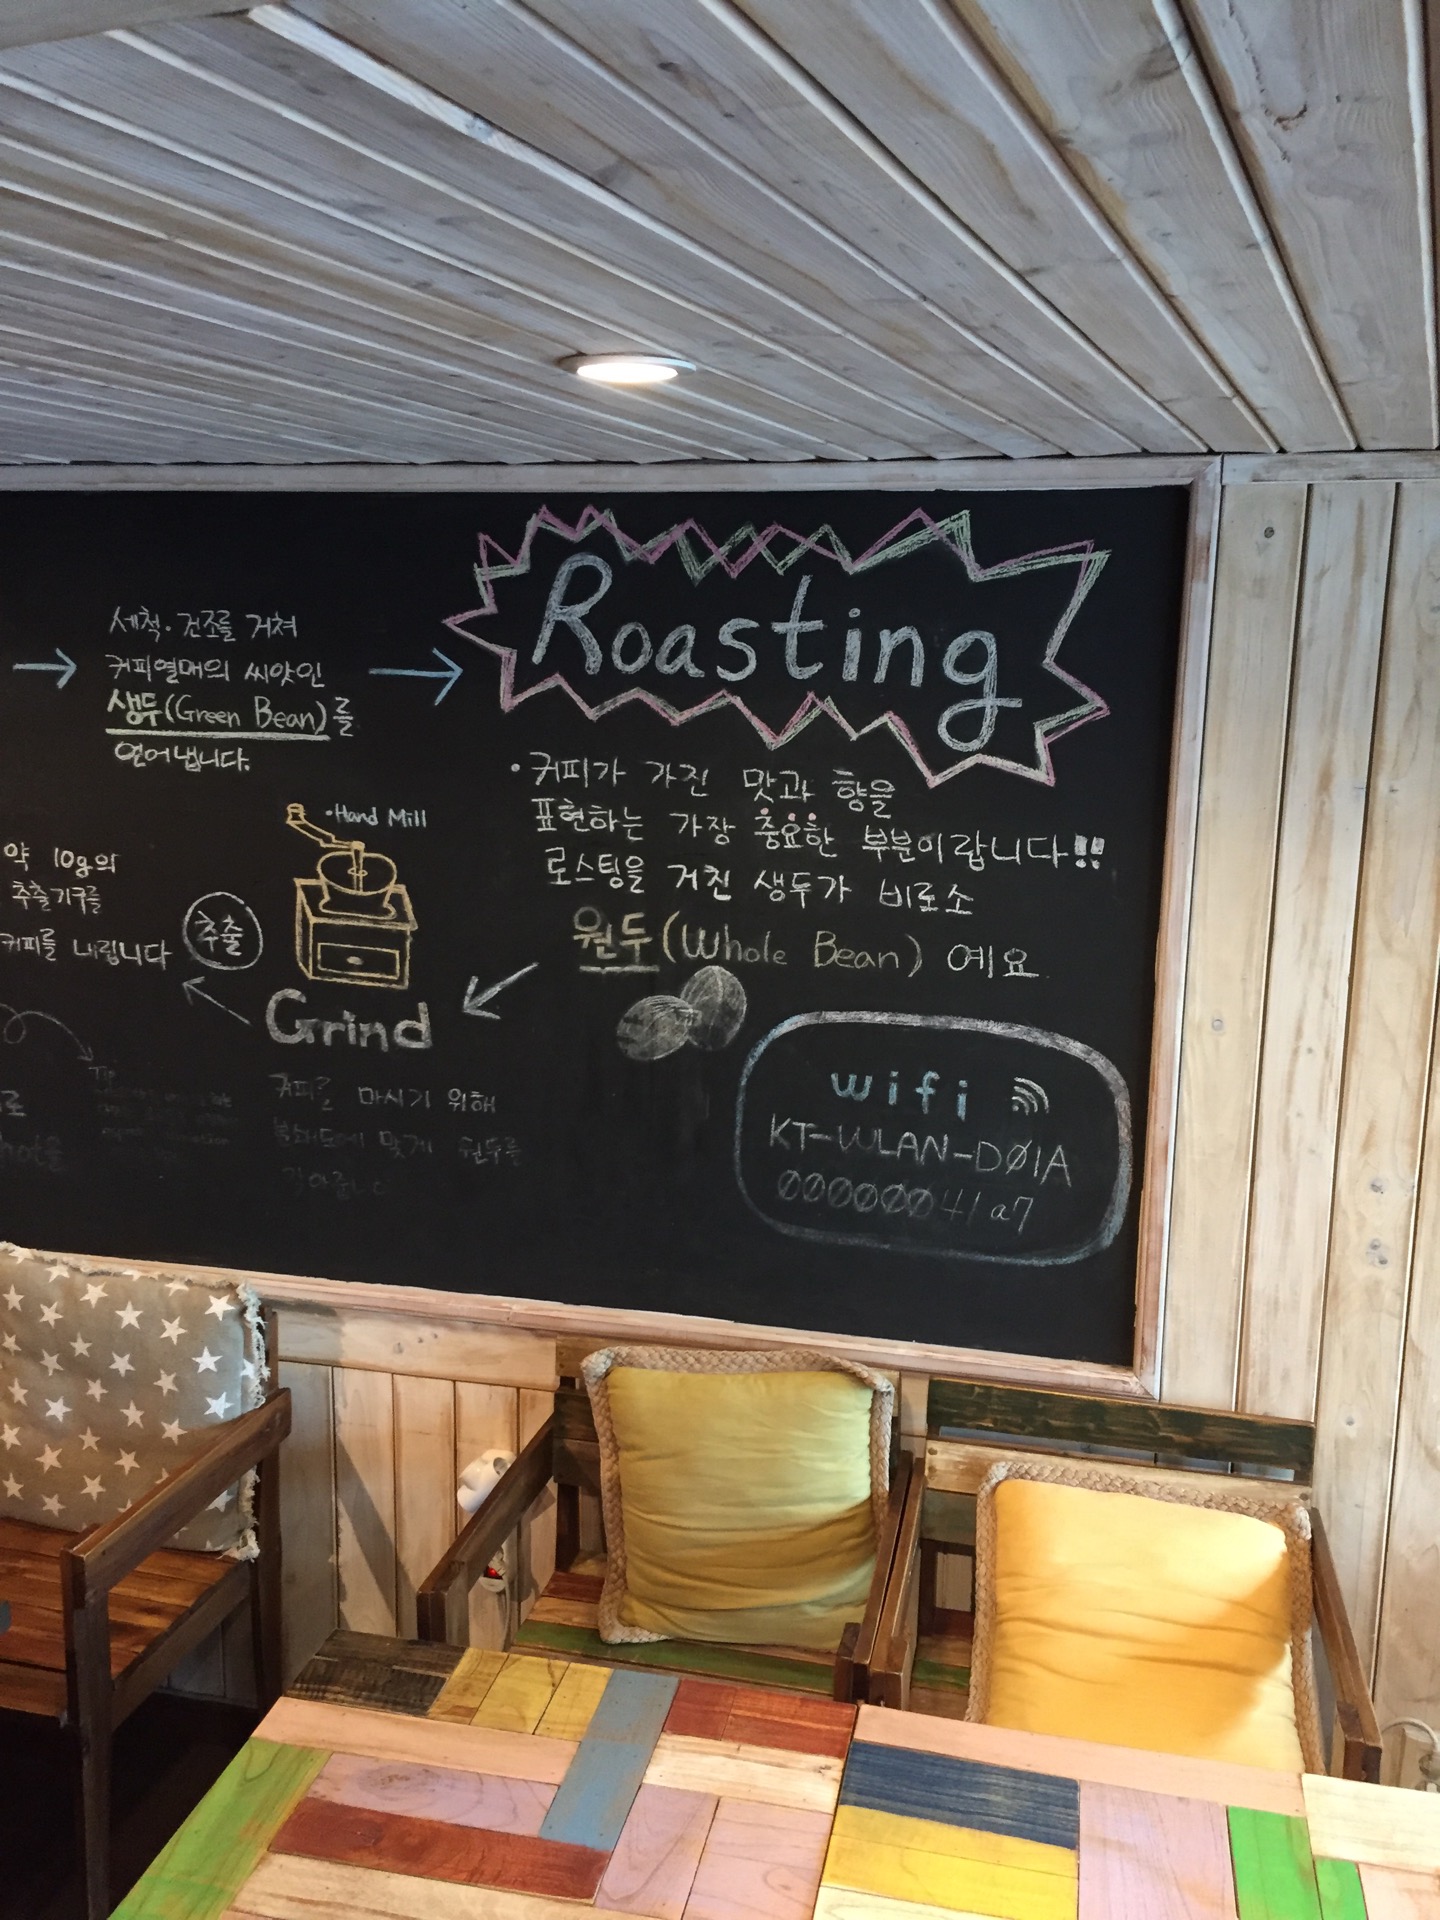 세척·건조를 거쳐
커피열매의 씨앗인
생두(Green Bean)를
얻어냅니다.
Roasting
·커피가 가진 맛과 향을
표현하는 가장 중요한 부분이랍니다!!
로스팅을 거친 생두가 비로소
원두(Whole Bean) 예요
·Hand Mill
Grind
커피를 마시기 위해
맞게 원두를
추출
약 10g의
추출기구를
커피를 내립니다
Tip
wifi
KT-WLAN-DØ1A
ØØØØØØ41a7